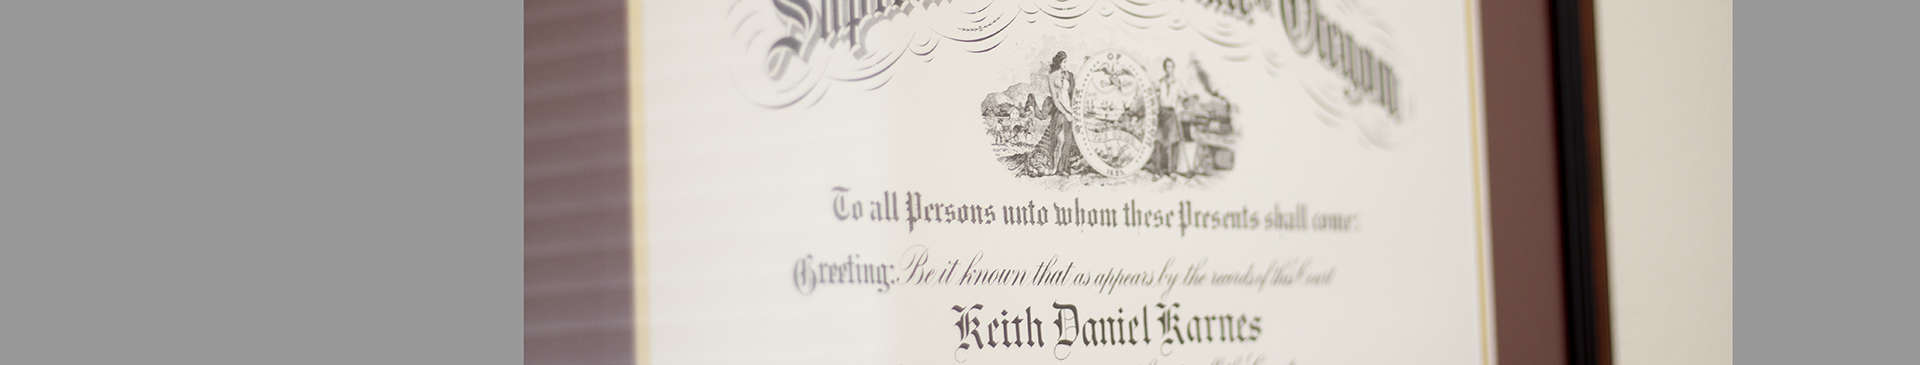 Oregon
To all Persons unto whom these Presents shall come:
Greeting: Be it known that as appears by the records of this Court
Keith Daniel Karnes